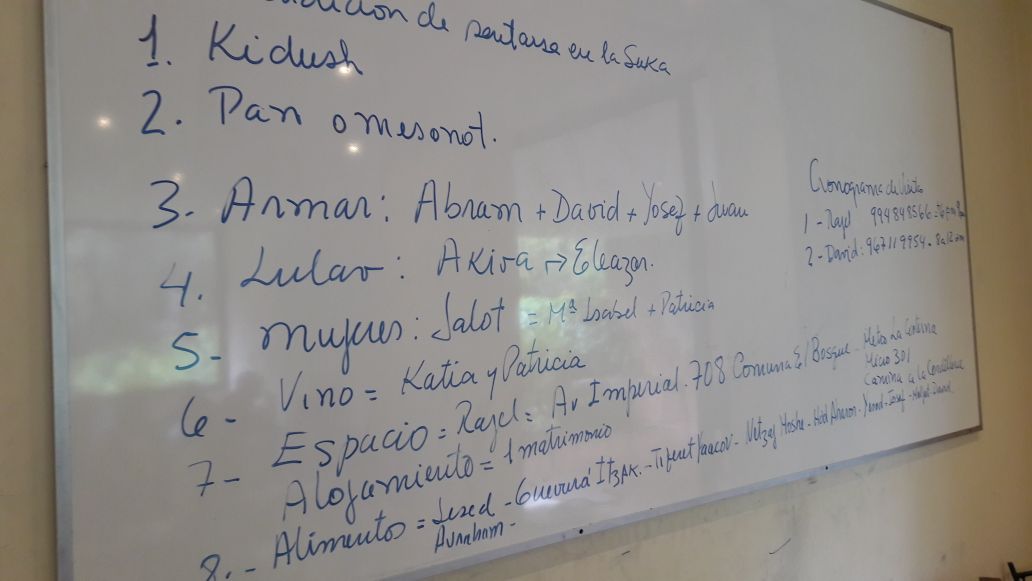 de sentarse en la Suka
1. Kidush
2. Pan o mesonot.
3- Armar: Abram + David + Yosef + Juan
4. Lulav: Akiva → Eleazar.
5- Mujeres: Jalot = Mª Isabel + Patricia
6- Vino = Katia y Patricia
7- Espacio = Rajel = Av Imperial. 708 Comuna El Bosque - Metro La Cisterna
Micro 301
Camina a la Cordillera
Alojamiento = 1 matrimonio
8.- Alimentos = Jesed - Guevurá Itzak. - Tiferet Yaacov - Netzaj Moshe - Hod Aharon - Yesod - Iosef - Maljut - David
Avraham -
Cronograma de Visita
1 - Rajel 994848566
2 - David: 967119954 - 8 a 12 am